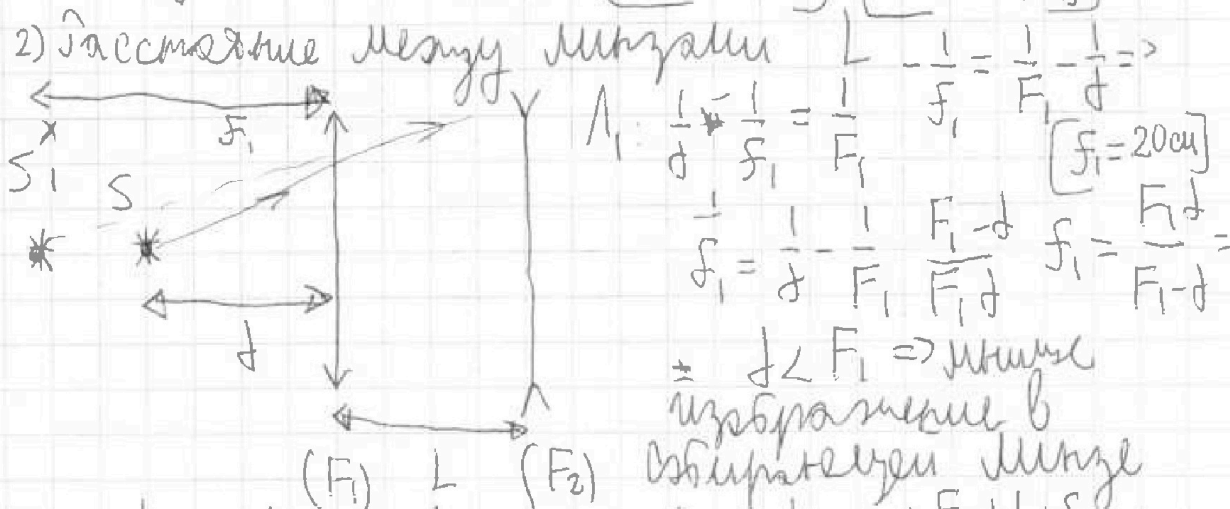 2) Расстояние между линзами L
-1/f₁ = 1/F₁ - 1/d =>
f₁
Л₁: 1/d - 1/f₁ = 1/F₁
[f₁ = 20см]
S₁
S
1/f₁ = 1/d - 1/F₁ F₁-d/F₁d f₁ = F₁d/F₁-d =
d
= d < F₁ => мнимое
изображение в
собирающей линзе
(F₁) L (F₂)